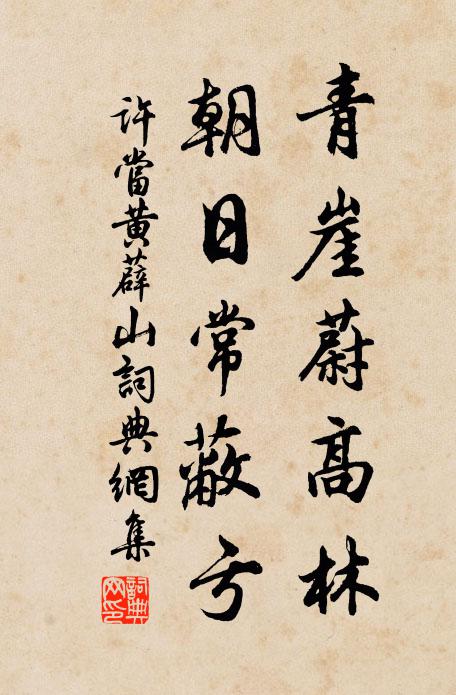 青崖蔚高林
朝日常蔽亏
许当黄薜山詞典網集
詞典网印